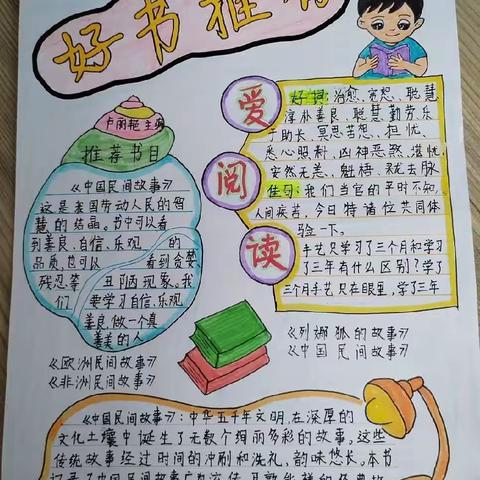 好书推荐
卢丽艳主编
推荐书目
《中国民间故事》
这是我国劳动人民的智
慧的结晶。书中可以看
到善良、自信、乐观、的
品质,也可以 看到贪婪、
残忍等 丑陋现象。我
们 要学习自信、乐观、
善良,做一个真
善美的人
《欧洲民间故事》
《非洲民间故事》
爱
阅
读
好词:治愈、宽恕、聪慧、
淳朴善良、聪慧勤劳乐
于助长、冥思苦想、担忧、
悉心照料、凶神恶煞、堪忧、
安然无恙、魁梧、来龙去脉
佳句:我们当官的平时不知
人间疾苦,今日特诸位共同体
验一下。
手艺只学习了三个月和学习
了三年有什么区别?学了
三个月手艺只在眼里,学了三年
《列那狐的故事》
《中国民间故事》
《中国民间故事》:中华五千年文明,在深厚的
文化土壤中诞生了无数个绚丽多彩的故事。这些
传统故事经过时间的冲刷和洗礼,韵味悠长。本书